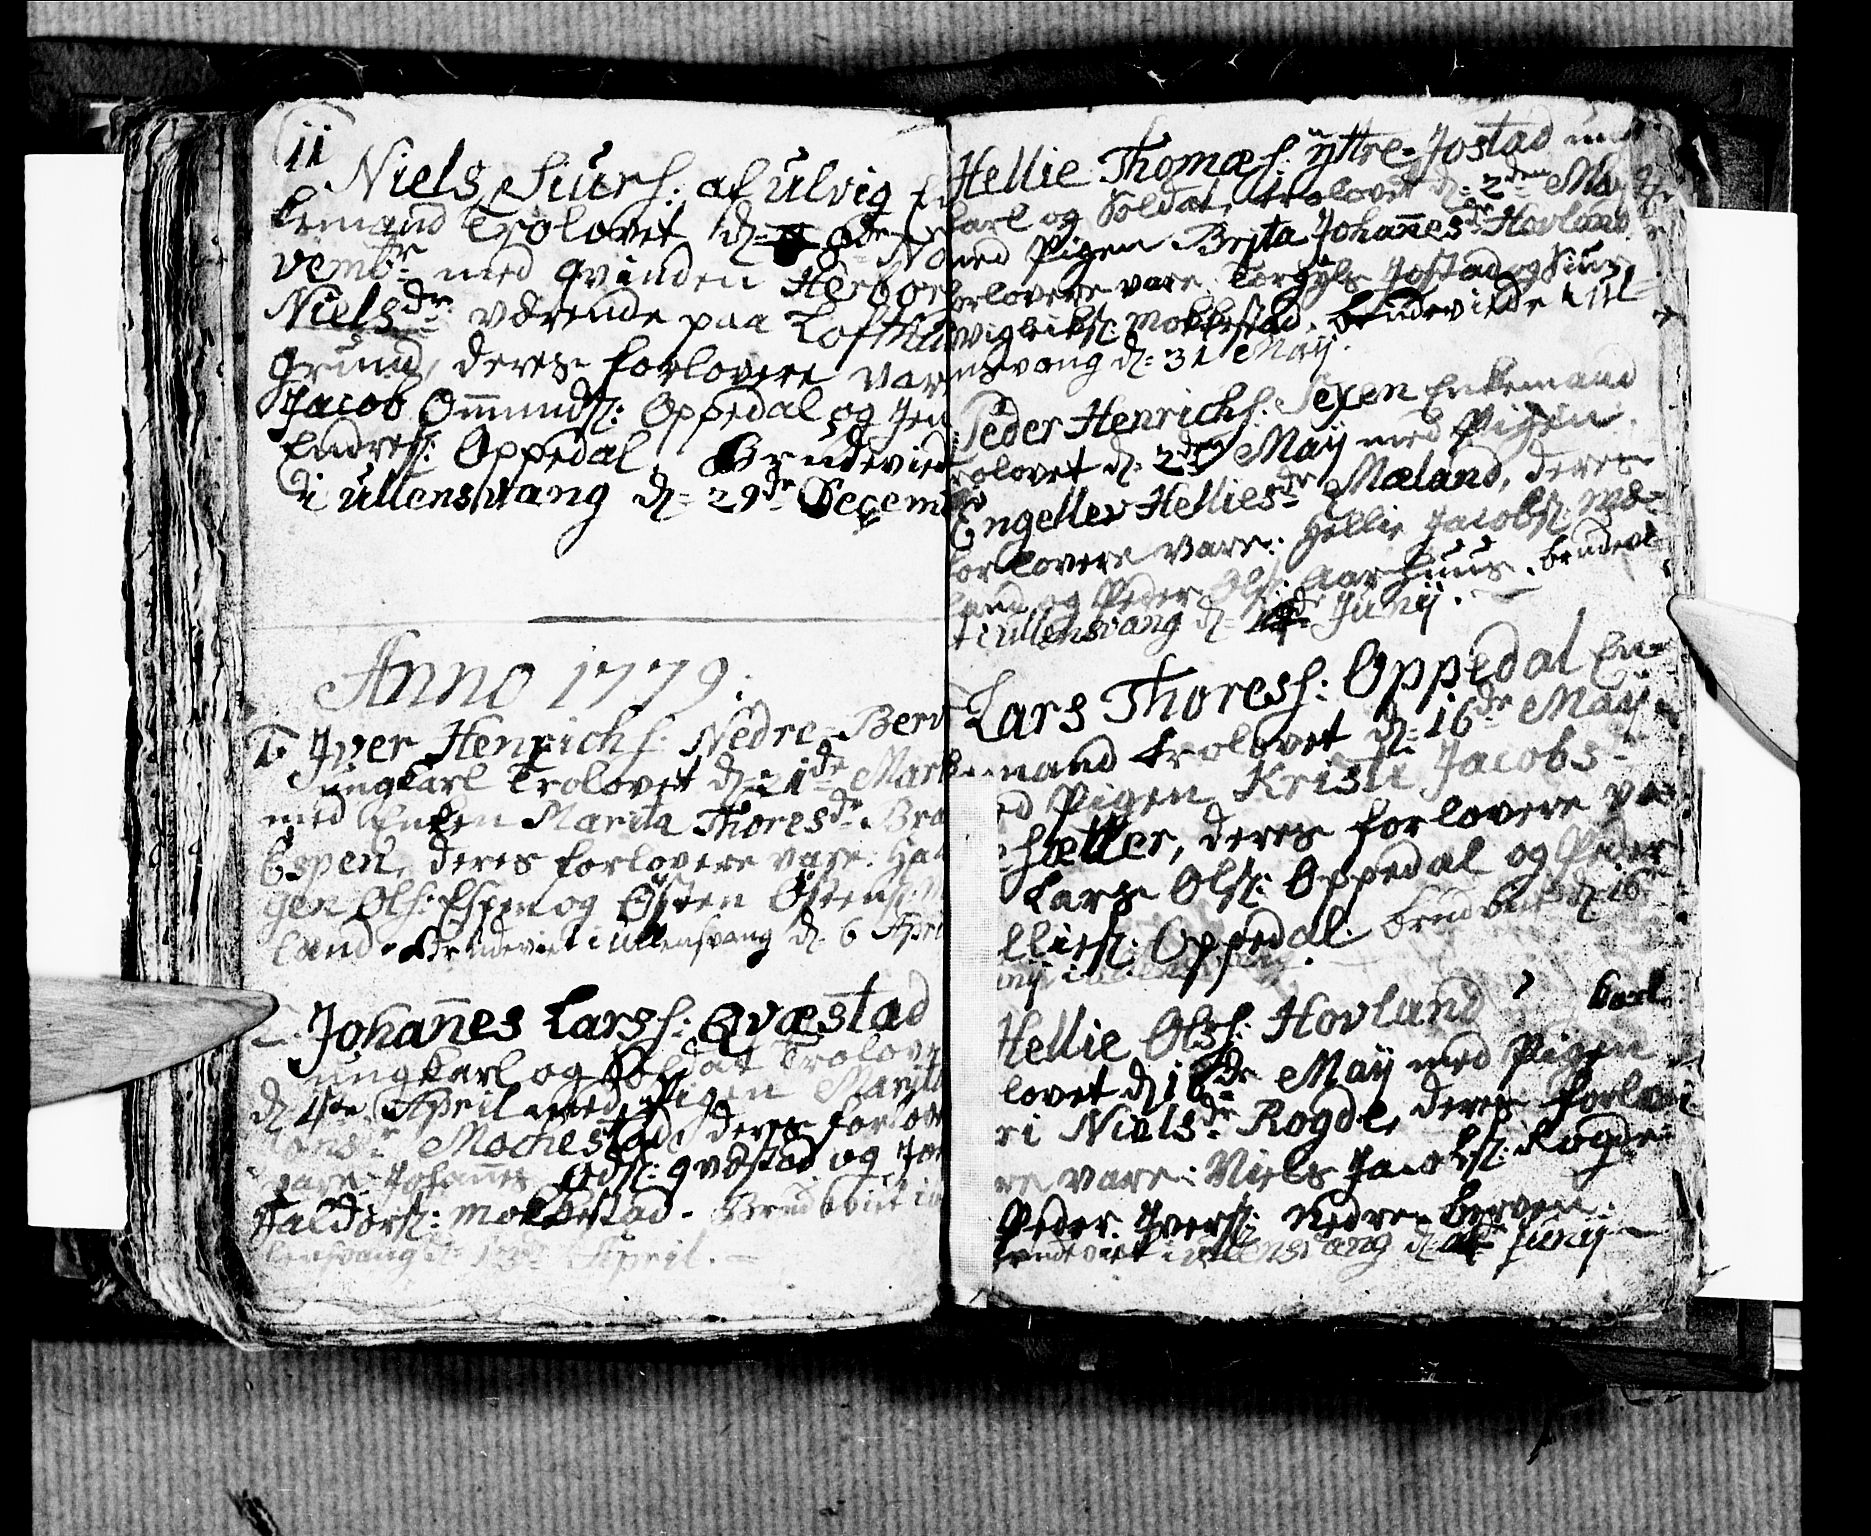 11
Niels Siurs: af Ulvig En
kemand Trolovet d= 8de No
vembr med qvinden Herbor
Nielsdr værende paa Lofthu
grund, deres forlovere var
Jacob Omunds: Oppedal og Jen
Endres: Oppedal. Brudeviet
i Ullensvang d= 29de Decemb
Anno 1779:
1. Jver Henrichs: Nedre-Berv
ungkarl Trolovet d= 21de Mart
med Enken Marita Thoresdr Bra
Espen, deres forlovere vare: Haa
gen Ols: Espen og Østen Østens:
land. Brudeviet i Ullensvang d= 6 Apri
2. Johañes Larss: Qvæstad
ungkarl og Soldat Trolove
d April med Pigen Marita
Monsdr Mochestad, deres forlov
vare: Johañes Ods: Qvæstad og Jon
Haldors: Mokkestad. Brudeviet i U
lensvang d= 13de April.
Hellie Thomæs: yttre-Jostad un
karl og Soldat, trolovet d= 2den May
med Pigen Brita Johañesdr Hovland
forlovere vare Torgyls Jostad og Siur
Vigleiks: Mokkestad. Brudeviede i Ull
ensvang d= 31 May.
Peder Henrichs: Sexen Enkemand
trolovet d= 2den May med Pigen
Engelev Helliesdr Mæland, deres
forlovere vare: Hellie Jacobs: Mæ=
land og Peder Ols: Aarhuus. brudevi
t i Ullensvang d= Junij.
Lars Thoress: Oppedal En=
kemand trolovet d= 16de May
med Pigen Kristi Jacobsdr
sætter, deres forlovere va
Lars Ols: Oppedal og Peder
Hellies: Oppedal. brudviet d 16
Junij i Ullensvang.
Hellie Olss: Hovland karl
lovet d 16de May med Pigen
ri Nielsdr Rogde, deres forlov
re vare: Niels Jacobs: Rogde
Peder Jvers: Nedre Berven.
brudeviet i Ullensvang d Junij